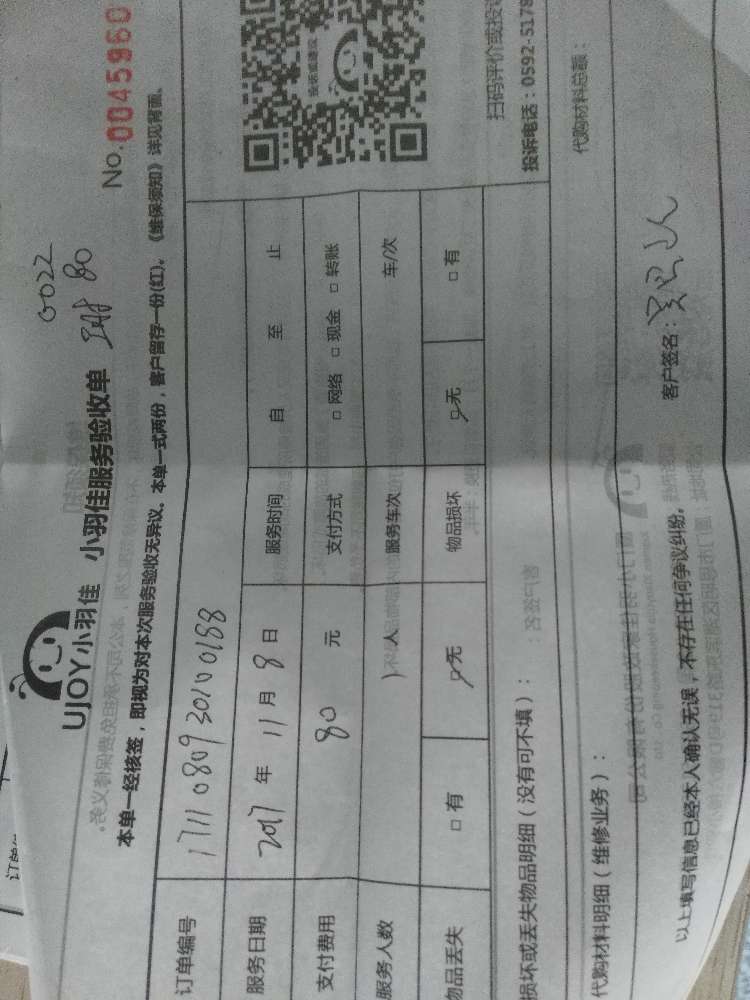 G022
UJOY小羽佳 小羽佳服务验收单 80
No.0045960
本单一经核签，即视为对本次服务验收无异议。本单一式两份，客户留存一份(红)。《维保须知》详见背面。
订单编号 1711080930100188
服务日期 2017 年 11 月 8 日 服务时间 自 至 止
支付费用 80 元 支付方式 □ 网络 □ 现金 □ 转账
服务人数 1 人 服务车次 车/次
物品丢失 □ 有 ☑ 无 物品损坏 ☑ 无 □ 有
扫码评价或投诉
投诉电话：0592-5178
损坏或丢失物品明细（没有可不填）：
代购材料明细（维修业务）： 代购材料总额：
以上填写信息已经本人确认无误，不存在任何争议纠纷。 客户签名：
订单